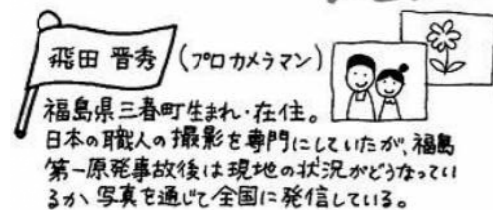 飛田 晋秀 (プロカメラマン)
福島県三春町生まれ・在住。
日本の職人の撮影を専門にしていたが、福島
第一原発事故後は現地の状況がどうなってい
るか、写真を通じて全国に発信している。